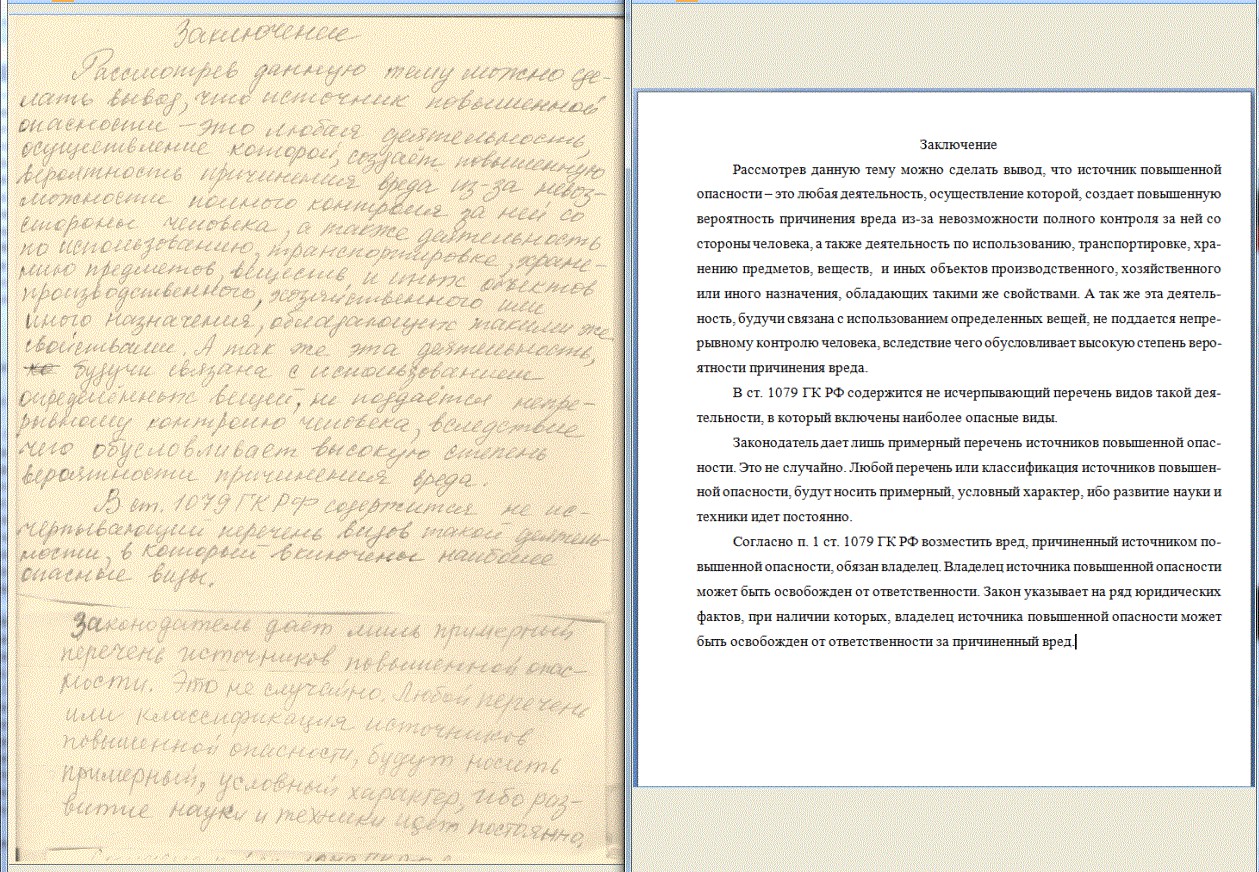 Заключение
Рассмотрев данную тему можно сде-
лать вывод, что источник повышенной
опасности – это любая деятельность,
осуществление которой, создаёт повышенную
вероятность причинения вреда из-за невоз-
можности полного контроля за ней со
стороны человека, а также деятельность
по использованию, транспортировке, хране-
нию предметов, веществ и иных объектов
производственного, хозяйственного или
иного назначения, обладающих такими же
свойствами. А так же эта деятельность,
будучи связана с использованием
определённых вещей, не поддаётся непре-
рывному контролю человека, вследствие
чего обусловливает высокую степень
вероятности причинения вреда.
В ст. 1079 ГК РФ содержится не ис-
черпывающий перечень видов такой деятель-
ности, в который включены наиболее
опасные виды.
Законодатель дает лишь примерный
перечень источников повышенной опас-
ности. Это не случайно. Любой перечень
или классификация источников
повышенной опасности, будут носить
примерный, условный характер, ибо раз-
витие науки и техники идет постоянно.
Заключение
Рассмотрев данную тему можно сделать вывод, что источник повышенной
опасности – это любая деятельность, осуществление которой, создает повышенную
вероятность причинения вреда из-за невозможности полного контроля за ней со
стороны человека, а также деятельность по использованию, транспортировке, хра-
нению предметов, веществ, и иных объектов производственного, хозяйственного
или иного назначения, обладающих такими же свойствами. А так же эта деятель-
ность, будучи связана с использованием определенных вещей, не поддается непре-
рывному контролю человека, вследствие чего обусловливает высокую степень веро-
ятности причинения вреда.
В ст. 1079 ГК РФ содержится не исчерпывающий перечень видов такой дея-
тельности, в который включены наиболее опасные виды.
Законодатель дает лишь примерный перечень источников повышенной опас-
ности. Это не случайно. Любой перечень или классификация источников повышен-
ной опасности, будут носить примерный, условный характер, ибо развитие науки и
техники идет постоянно.
Согласно п. 1 ст. 1079 ГК РФ возместить вред, причиненный источником по-
вышенной опасности, обязан владелец. Владелец источника повышенной опасности
может быть освобожден от ответственности. Закон указывает на ряд юридических
фактов, при наличии которых, владелец источника повышенной опасности может
быть освобожден от ответственности за причиненный вред.